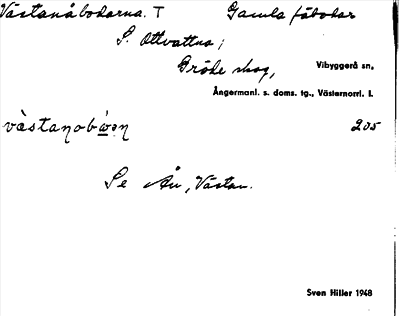 Västanåbodarna. T Gamla fäbodar
S. Ottvattnet;
Gröde skog, Vibyggerå sn,
Ångermanl. s. doms. tg., Västernorrl. l.
205
Se Ån, Västan.
Sven Hiller 1948